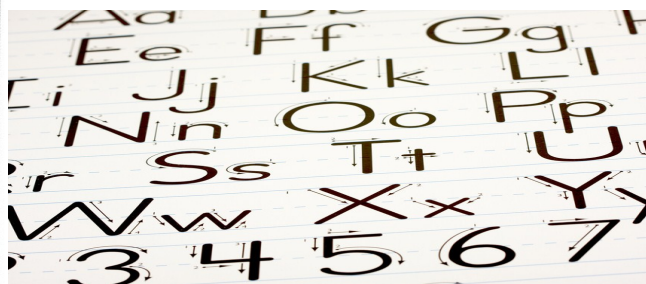 Aa
Ee Ff Gg
i Jj Kk Ll
Nn Oo Pp
r Ss Tt U
Ww Xx Y
3 4 5 6 7